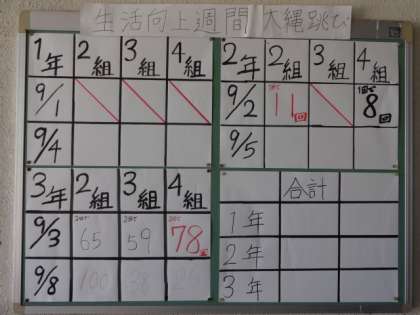 生活向上週間 大縄跳び
1年 2組 3組 4組
9/1
9/4
2年 2組 3組 4組
9/2 11回 8回
9/5
3年 2組 3組 4組
9/3 65 59 78
9/8 100 38
合計
1年
2年
3年